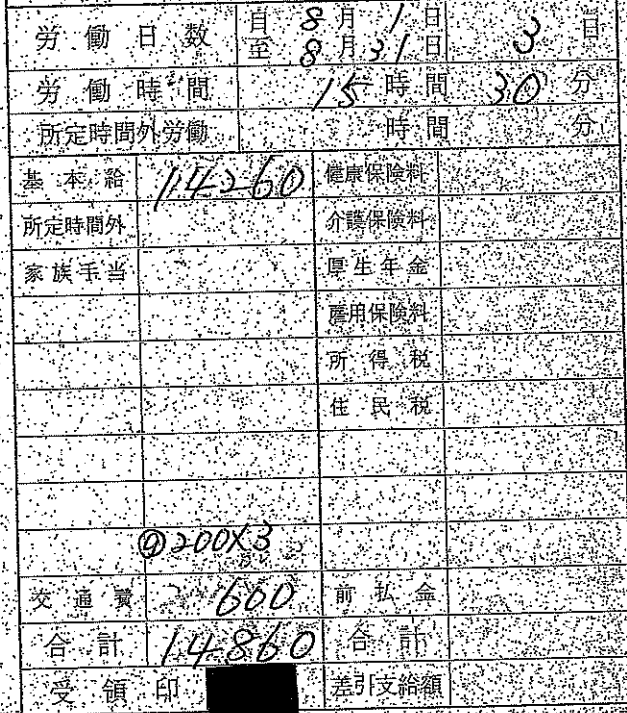 労働日数 自 8月1日 至 8月31日 3日
労働時間 15時間 30分
所定時間外労働 時間 分
基本給 14260 健康保険料
所定時間外 介護保険料
家族手当 厚生年金
雇用保険料
所得税
住民税
@200×3
交通費 600 前払金
合計 14860 合計
受領印 差引支給額